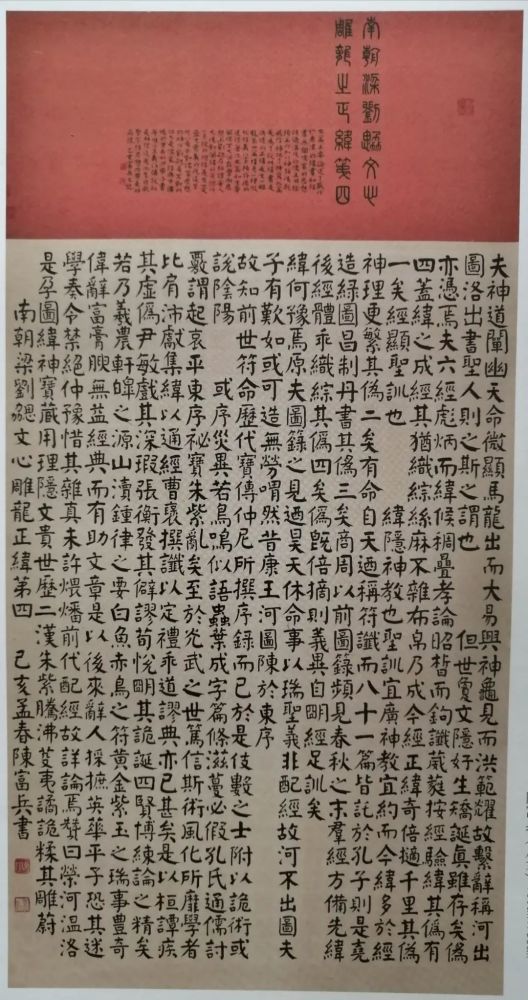 南朝梁劉勰文心
雕龍之正緯第四
夫神道闡幽天命微顯馬龍出而大易興神龜見而洪範耀故繫辭稱河出
圖洛出書聖人則之斯之謂也 但世夐文隱好生矯誕真雖存矣偽
亦憑焉夫六經彪炳而緯候稠疊孝論昭晳而鉤讖葳蕤按經驗緯其偽有
四蓋緯之成經其猶織綜絲麻不雜布帛乃成今經正緯奇倍擿千里其偽
一矣經顯聖訓也 緯隱神教也聖訓宜廣神教宜約而今緯多於經
神理更繁其偽二矣有命自天迺稱符讖而八十一篇皆託於孔子則是堯
造綠圖昌制丹書其偽三矣商周以前圖籙頻見春秋之末羣經方備先緯
後經體乖織綜其偽四矣偽既倍摘則義異自明經足訓矣
緯何豫焉原夫圖籙之見迺昊天休命事以瑞聖義非配經故河不出圖夫
子有歎如或可造無勞喟然昔康王河圖陳於東序
故知前世符命歷代寶傳仲尼所撰序錄而已於是伎數之士附以詭術或
說陰陽 或序災異若鳥鳴似語蟲葉成字篇條滋蔓必假孔氏通儒討
覈謂起哀平東序祕寶朱紫亂矣至於光武之世篤信斯術風化所靡學者
比肩沛獻集緯以通經曹褒撰讖以定禮乖道謬典亦已甚矣是以桓譚疾
其虛偽尹敏戲其深瑕張衡發其僻謬荀悅明其詭誕四賢博練論之精矣
若乃羲農軒皞之源山瀆鍾律之要白魚赤烏之符黃金紫玉之瑞事豐奇
偉辭富膏腴無益經典而有助文章是以後來辭人採摭英華平子恐其迷
學奏令禁絕仲豫惜其雜真未許煨燔前代配經故詳論焉贊曰榮河溫洛
是孕圖緯神寶藏用理隱文貴世歷二漢朱紫騰沸芟夷譎詭糅其雕蔚
南朝梁劉勰文心雕龍正緯第四 己亥孟春陳富兵書